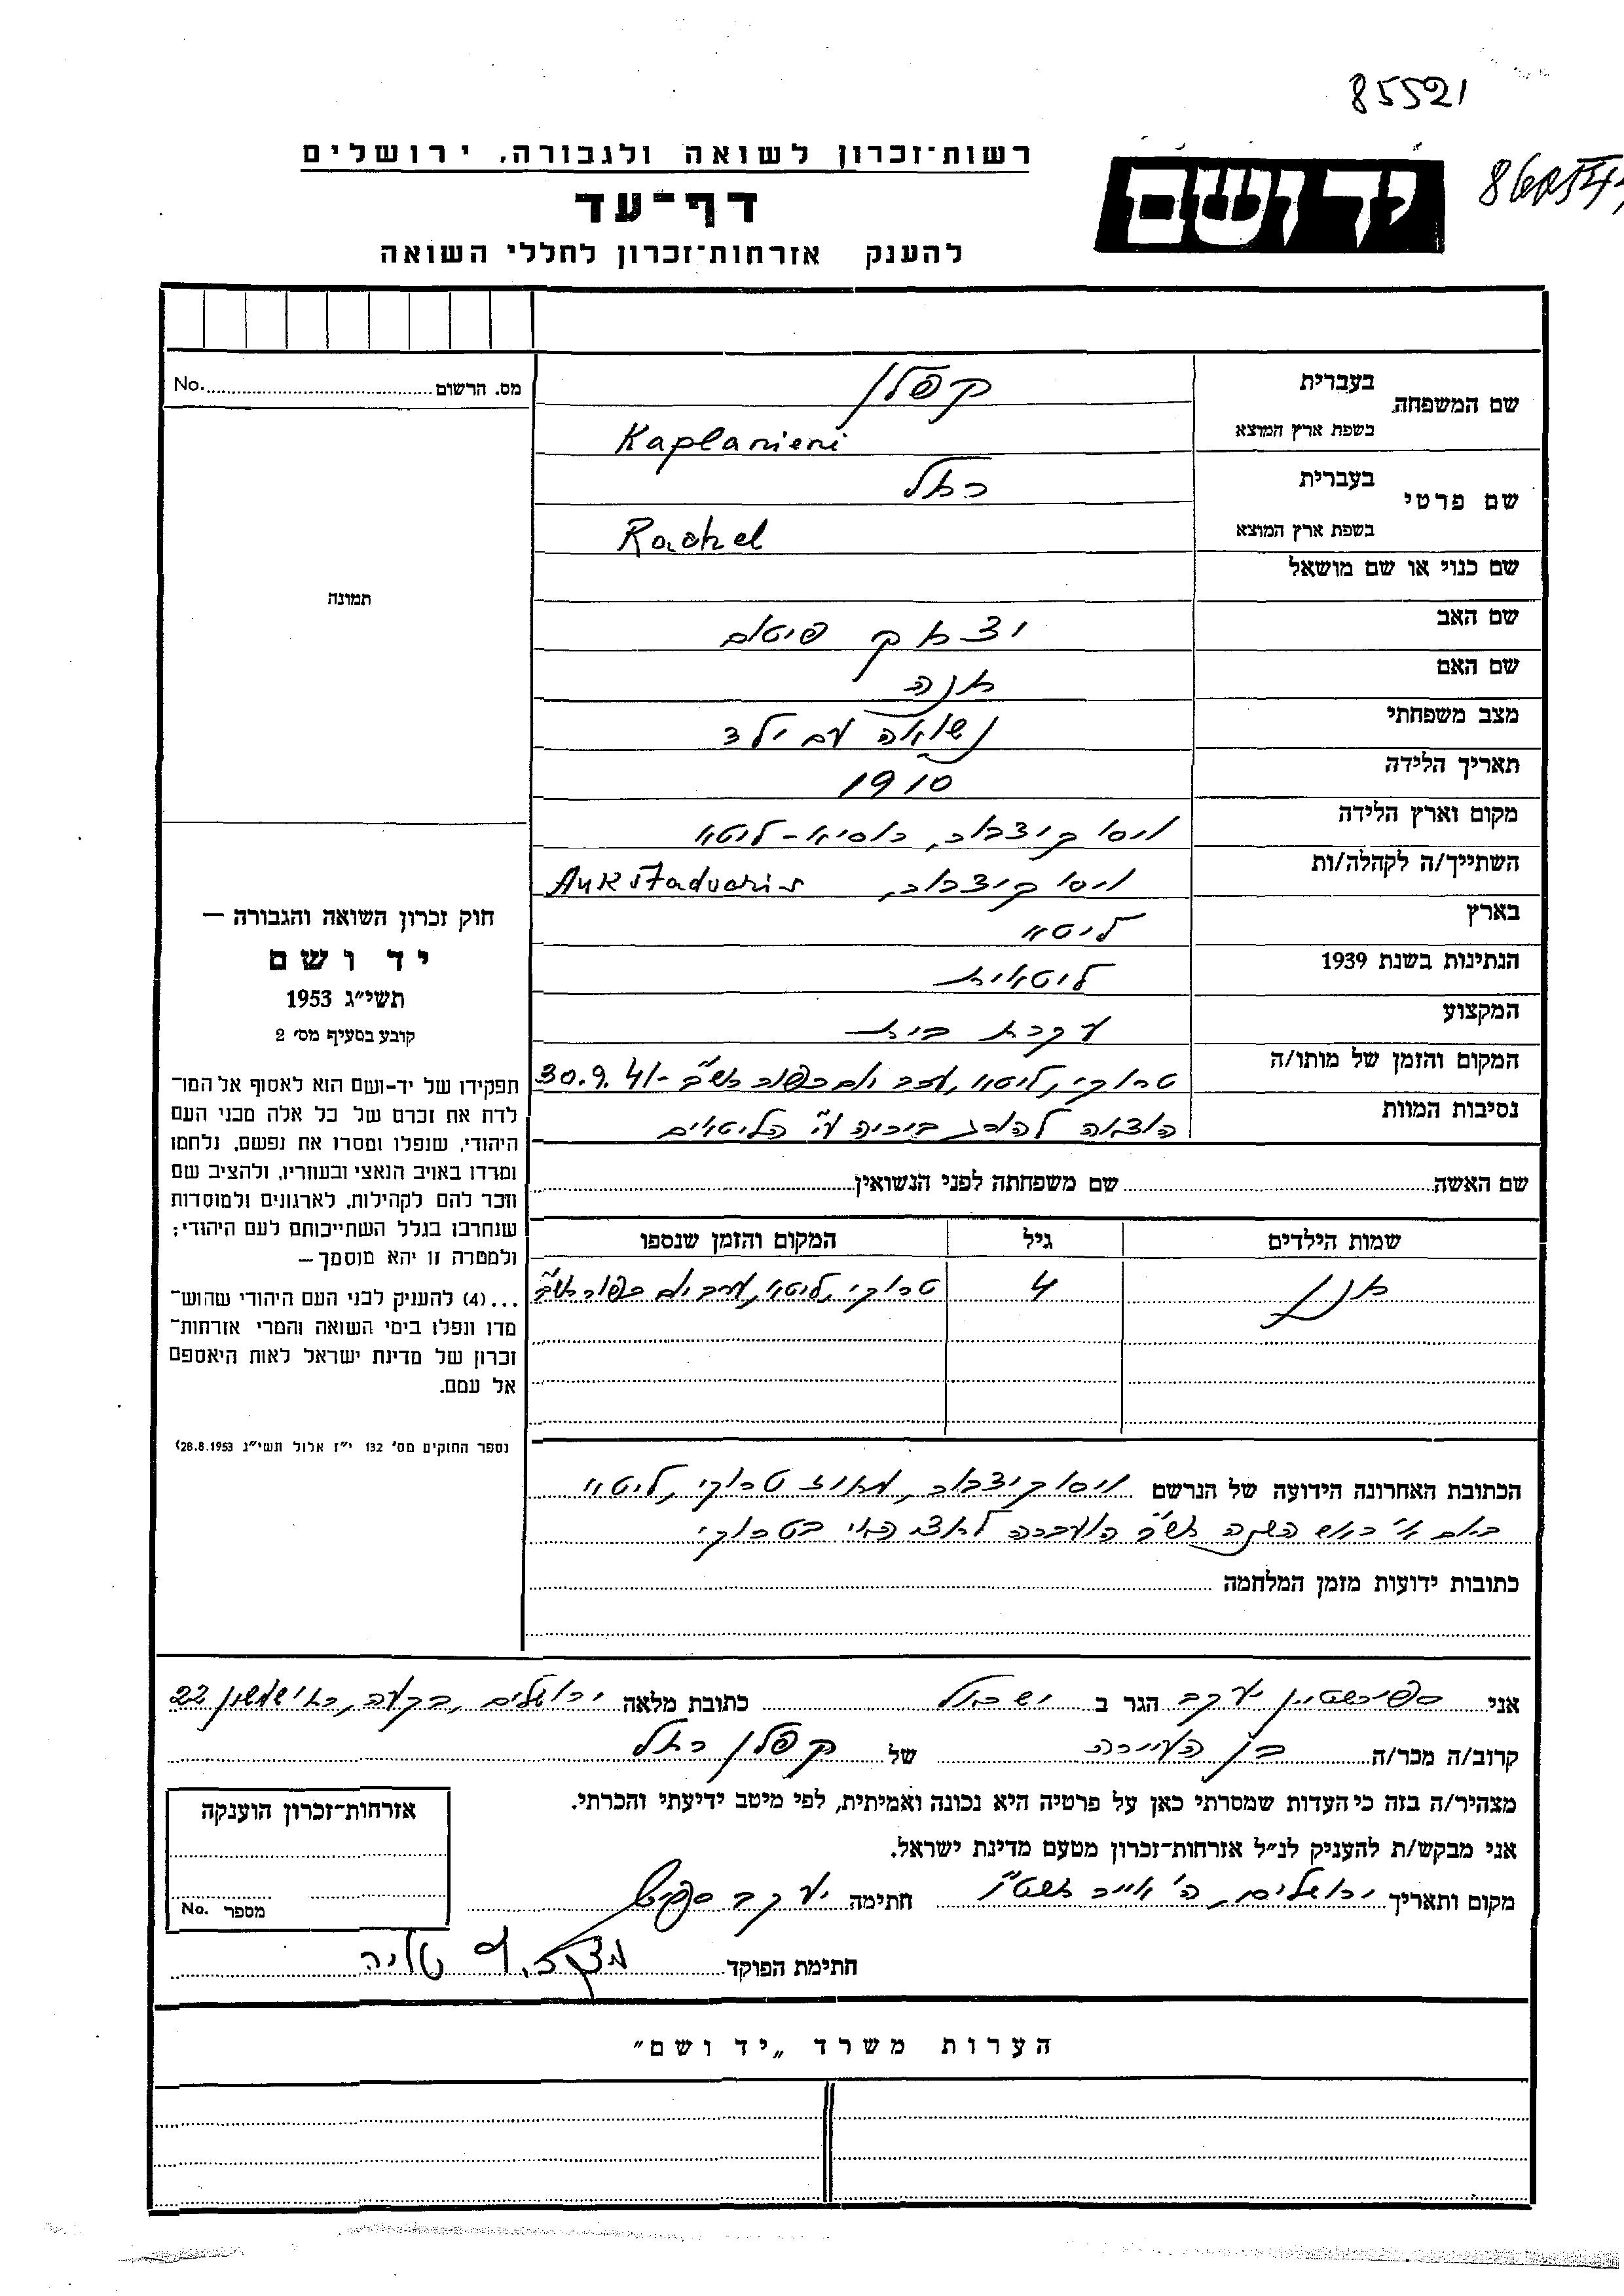 85521
רשות־זכרון לשואה ולגבורה, ירושלים
יד ושם
דף־עד
להענק אזרחות־זכרון לחללי השואה
מס. הרשום No.
תמונה
שם המשפחה
בעברית
קפלן
בשפת ארץ המוצא
Kaplanieni
שם פרטי
בעברית
רחל
בשפת ארץ המוצא
Rachel
שם כנוי או שם מושאל
שם האב
יצחק
שם האם
חנה
מצב משפחתי
נשואה עם ילד
תאריך הלידה
1910
מקום וארץ הלידה
רוסיא-ליטא
השתייך/ה לקהלה/ות
Aukštadvaris
בארץ
ליטא
הנתינות בשנת 1939
ליטאית
המקצוע
עקרת בית
המקום והזמן של מותו/ה
טרוקי, ליטא, ערב יום כפור תש"ב - 30.9.41
נסיבות המוות
הוצאה להורג ביריה ע"י הליטאים
שם האשה
שם משפחתה לפני הנשואין
שמות הילדים
גיל
המקום והזמן שנספו
4
טרוקי, ליטא, ערב יום כפור תש"ב
חוק זכרון השואה והגבורה —
יד ושם
תשי״ג 1953
קובע בסעיף מס׳ 2
תפקידו של יד-ושם הוא לאסוף אל המו־
לדת את זכרם של כל אלה מבני העם
היהודי, שנפלו ומסרו את נפשם, נלחמו
ומרדו באויב הנאצי ובעוזריו, ולהציב שם
וזכר להם לקהילות, לארגונים ולמוסדות
שנחרבו בגלל השתייכותם לעם היהודי;
ולמטרה זו יהא מוסמך—
...(4) להעניק לבני העם היהודי שהוש־
מדו ונפלו בימי השואה והמרי אזרחות־
זכרון של מדינת ישראל לאות היאספם
אל עמם.
(ספר החוקים מס׳ 132 י״ז אלול תשי״ג 28.8.1953)
הכתובת האחרונה הידועה של הנרשם מחוז טרוקי, ליטא
ביום א' ראש השנה תש"ב הועברה לאי בטרוקי
כתובות ידועות מזמן המלחמה
אני יעקב הגר ב ישראל כתובת מלאה ירושלים, בקעה, 22
קרוב/ה מכר/ה בן העיירה של קפלן רחל
מצהיר/ה בזה כי העדות שמסרתי כאן על פרטיה היא נכונה ואמיתית, לפי מיטב ידיעתי והכרתי.
אני מבקש/ת להעניק לנ״ל אזרחות־זכרון מטעם מדינת ישראל.
מקום ותאריך ירושלים, ה' אייר חתימה יעקב
חתימת הפוקד
אזרחות־זכרון הוענקה
מספר No.
הערות משרד „יד ושם״